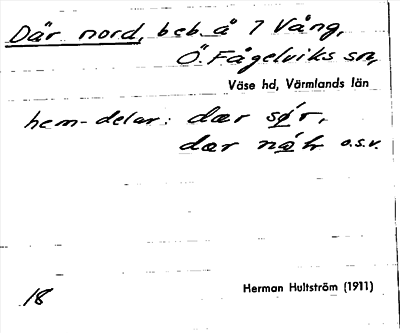 Där nord, beb. å 7 Vång,
Ö. Fågelviks sn,
Väse hd, Värmlands län
hem-delar: dær sǿr,
dær nǻh o.s.v.
18
Herman Hultström (1911)